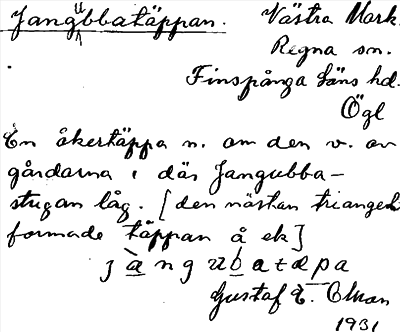 Jangubbatäppan. Västra Mark.
Regna sn.
Finspånga läns hd.
Ögl
En åkertäppa n. om den v. av
gårdarna, där Jangubba-
stugan låg. [den nästan triangel-
formade täppan å ek]
jàngubatæpa
Gustaf E.
1931